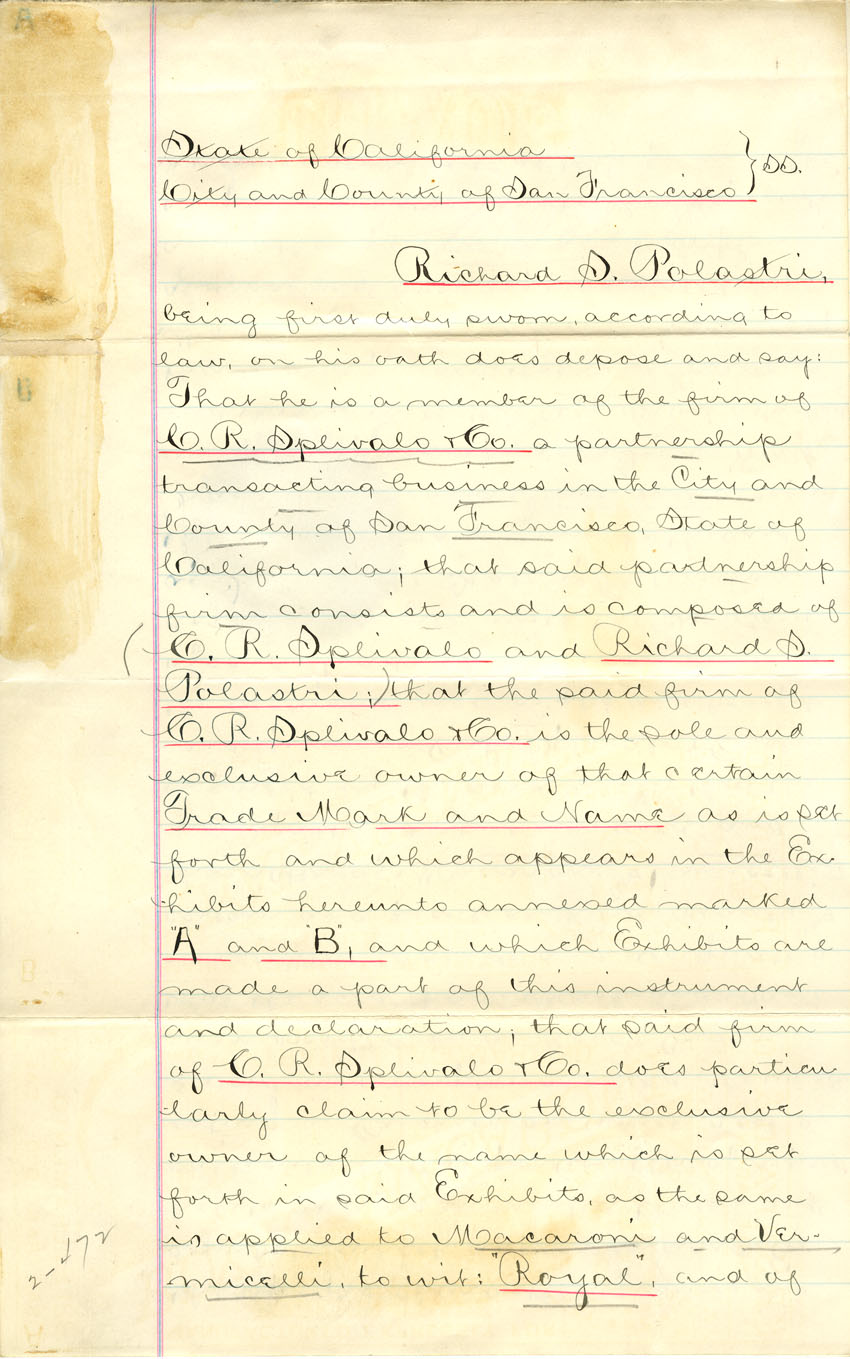 State of California
City and County of San Francisco } ss.
Richard S. Polastri,
being first duly sworn, according to
law, on his oath does depose and say:
That he is a member of the firm of
C. R. Splivalo & Co. a partnership
transacting business in the City and
County of San Francisco, State of
California; that said partnership
firm consists and is composed of
(C. R. Splivalo and Richard S.
Polastri;) that the said firm of
C. R. Splivalo & Co. is the sole and
exclusive owner of that certain
Trade Mark and Name as is set
forth and which appears in the Ex-
hibits hereunto annexed marked
"A" and "B", and which Exhibits are
made a part of this instrument
and declaration; that said firm
of C. R. Splivalo & Co. does particu
larly claim to be the exclusive
owner of the name which is set
forth in said Exhibits, as the same
is applied to Macaroni and Ver-
micelli, to wit: "Royal", and of